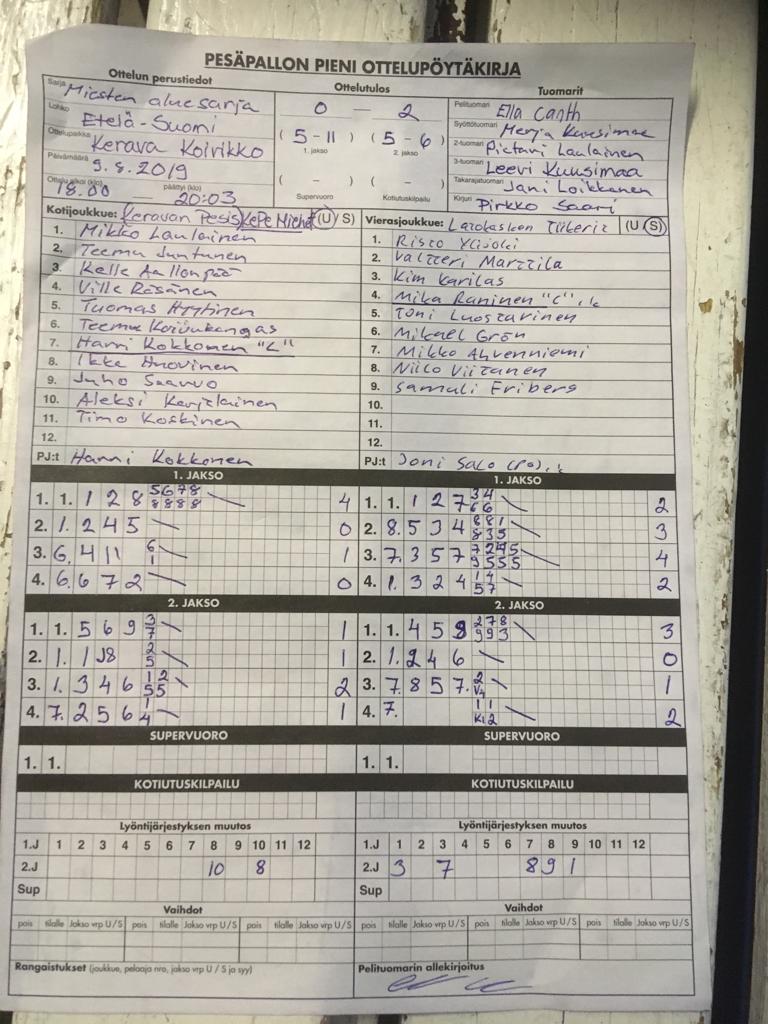 PESÄPALLON PIENI OTTELUPÖYTÄKIRJA
Ottelun perustiedot
Sarja Miesten aluesarja
Lohko Etelä-Suomi
Ottelupaikka Kerava Koivikko
Päivämäärä 9.8.2019
Ottelu alkoi (klo) 18.00 päättyi (klo) 20:03
Ottelutulos
0 — 2
( 5 - 11 ) ( 5 - 6 )
1. jakso 2. jakso
( - ) ( - )
Supervuoro Kotiutuskilpailu
Tuomarit
Pelituomari Ella Canth
Syöttötuomari Merja Kuusimaa
2-tuomari Pietari Laulainen
3-tuomari Leevi Kuusimaa
Takarajatuomari Jani Loikkanen
Kirjuri Pirkko Saari
Kotijoukkue: Keravan Pesis (KePe Miehet) (U/S)
1. Mikko Laulainen
2. Teemu Juntunen
3. Kalle Aallonpää
4. Ville Räsänen
5. Tuomas Hyytinen
6. Teemu Koivukangas
7. Harri Kokkonen "C"
8. Ilkka Huovinen
9. Juho Saavuo
10. Aleksi Karjalainen
11. Timo Koskinen
12.
PJ:t Harri Kokkonen
Vierasjoukkue: Laaksolahden Tiikerit (U/S)
1. Risto Ylijoki
2. Valtteri Marttila
3. Kim Karilas
4. Mika Raninen "C"
5. Toni Luostarinen
6. Mikael Grön
7. Mikko Ahvenniemi
8. Niilo Viitanen
9. Samuli Friberg
10.
11.
12.
PJ:t Joni Salo (PO)
1. JAKSO
1. 1. 1 2 8 5678 4
8888
2. 1. 2 4 5 0
3. 6. 4 11 6 1
1
4. 6. 6 7 2 0
1. JAKSO
1. 1. 1 2 7 34 2
66
2. 8. 5 3 4 881 3
835
3. 7. 3 5 7 7245 4
9555
4. 1. 3 2 4 14 2
57
2. JAKSO
1. 1. 5 6 9 3 1
7
2. 1. 1 J8 2 1
5
3. 1. 3 4 6 12 2
55
4. 7. 2 5 6 1 1
4
2. JAKSO
1. 1. 4 5 9 278 3
993
2. 1. 2 4 6 0
3. 7. 8 5 7. 2 1
V4
4. 7. 11 2
K12
SUPERVUORO
1. 1.
SUPERVUORO
1. 1.
KOTIUTUSKILPAILU
KOTIUTUSKILPAILU
Lyöntijärjestyksen muutos
1.J 1 2 3 4 5 6 7 8 9 10 11 12
2.J 10 8
Sup
Lyöntijärjestyksen muutos
1.J 1 2 3 4 5 6 7 8 9 10 11 12
2.J 3 7 8 9 1
Sup
Vaihdot
pois tilalle Jakso vrp U/S pois tilalle Jakso vrp U/S pois tilalle Jakso vrp U/S
Vaihdot
pois tilalle Jakso vrp U/S pois tilalle Jakso vrp U/S pois tilalle Jakso vrp U/S
Rangaistukset (joukkue, pelaaja nro, jakso vrp U / S ja syy)
Pelituomarin allekirjoitus